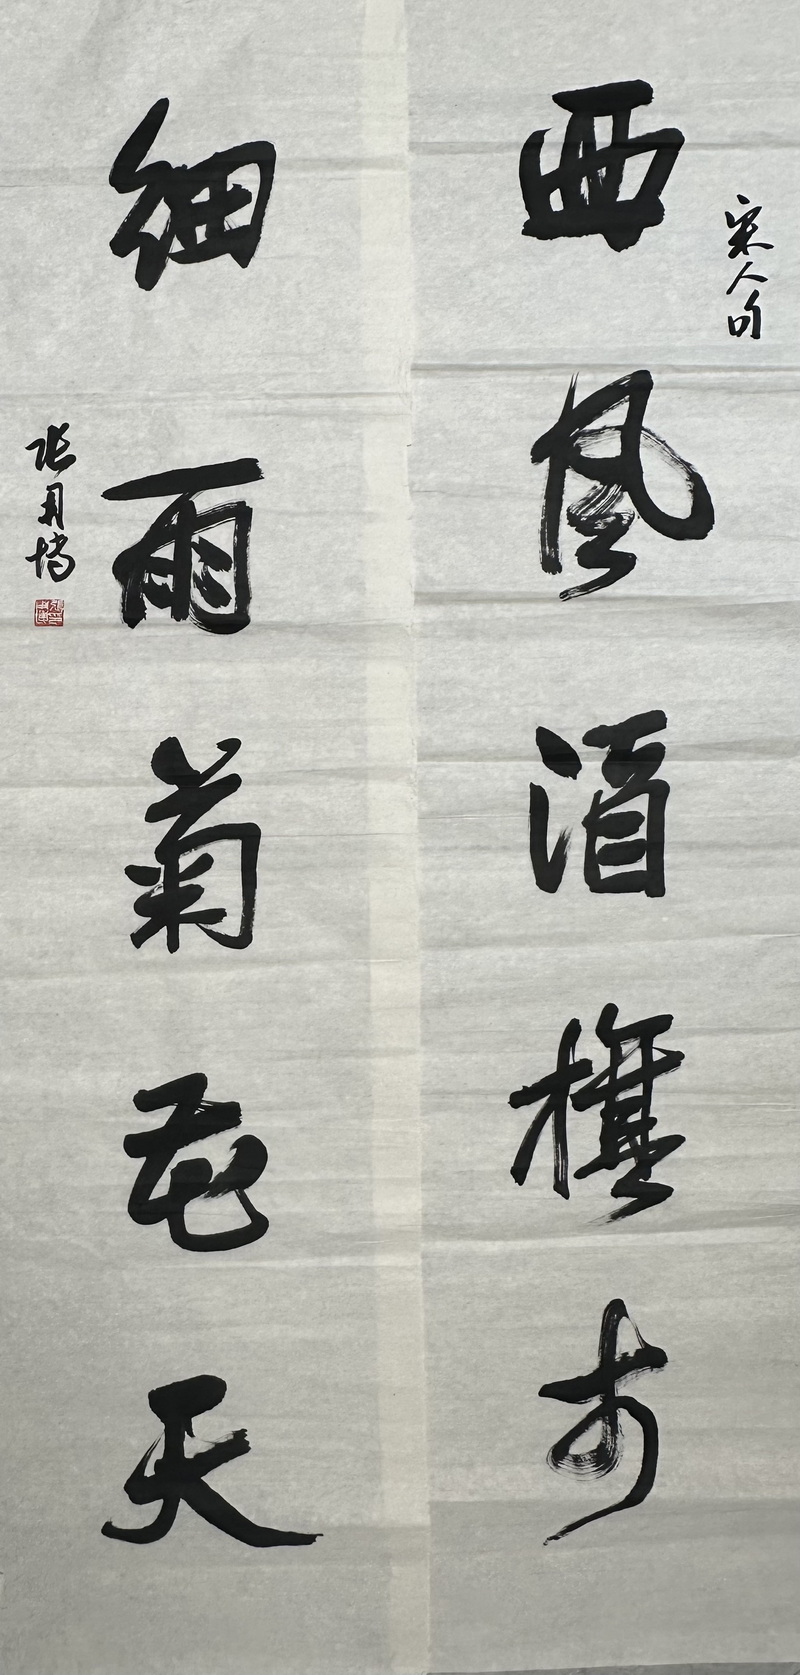 宋人句
西風酒旗市
細雨菊花天
张